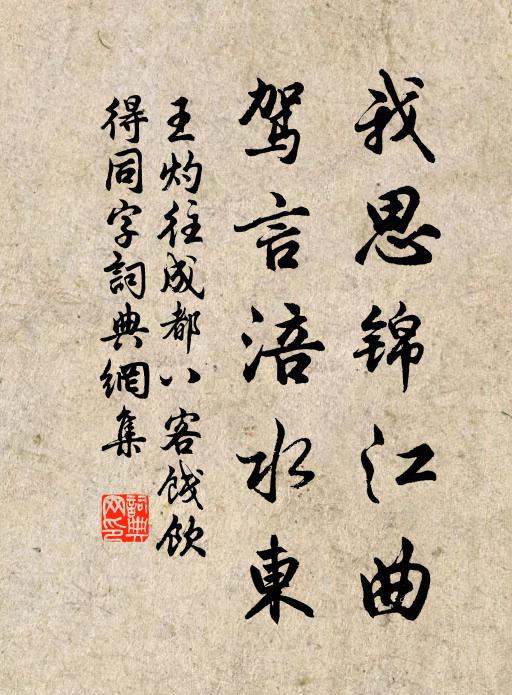 我思锦江曲
驾言涪水東
王灼往成都八客餞飲
得同字詞典網集
詞典
网印